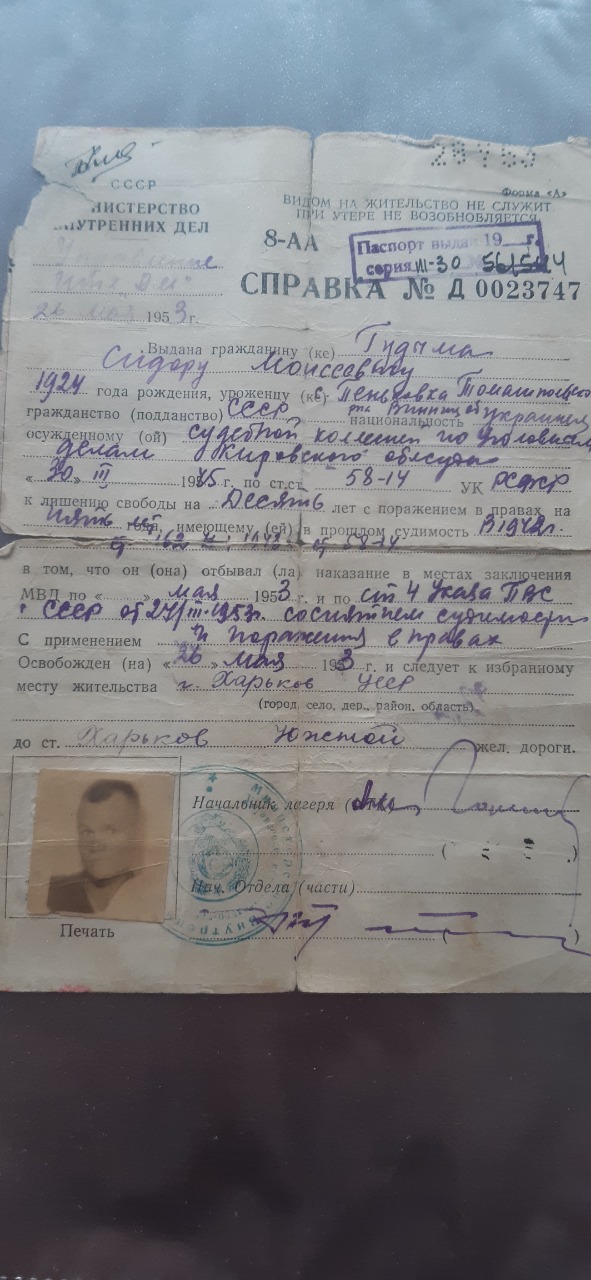 СССР
Форма «А»
НИСТЕРСТВО
ВИДОМ НА ЖИТЕЛЬСТВО НЕ СЛУЖИТ
УТРЕННИХ ДЕЛ
ПРИ УТЕРЕ НЕ ВОЗОБНОВЛЯЕТСЯ
8-АА
Паспорт выдан 19 г.
серия III-30
26 мая 1953 г.
СПРАВКА № Д 0023747
Выдана гражданину (ке) Гудыма
Сидору Моисеевичу
1924 года рождения, уроженцу (ке) Пеньковка
гражданство (подданство) СССР национальность украинец
осужденному (ой) судебной коллегией по уголовным
делам Кировского облсуда
«30» III 1945 г. по ст.ст. 58-14 УК РСФСР
к лишению свободы на Десять лет с поражением в правах на
пять лет, имеющему (ей) в прошлом судимость В 1942г.
58-14
в том, что он (она) отбывал (ла) наказание в местах заключения
МВД по « » мая 1953 г. и по ст 4 Указа ПВС
СССР от 27/III-1953г. со снятием судимости
С применением и поражения в правах
Освобожден (на) «26» мая 1953 г. и следует к избранному
месту жительства г. Харьков УССР
(город, село, дер., район, область)
до ст. Харьков Южной жел. дороги.
Начальник лагеря
Нач. Отдела (части)
Печать